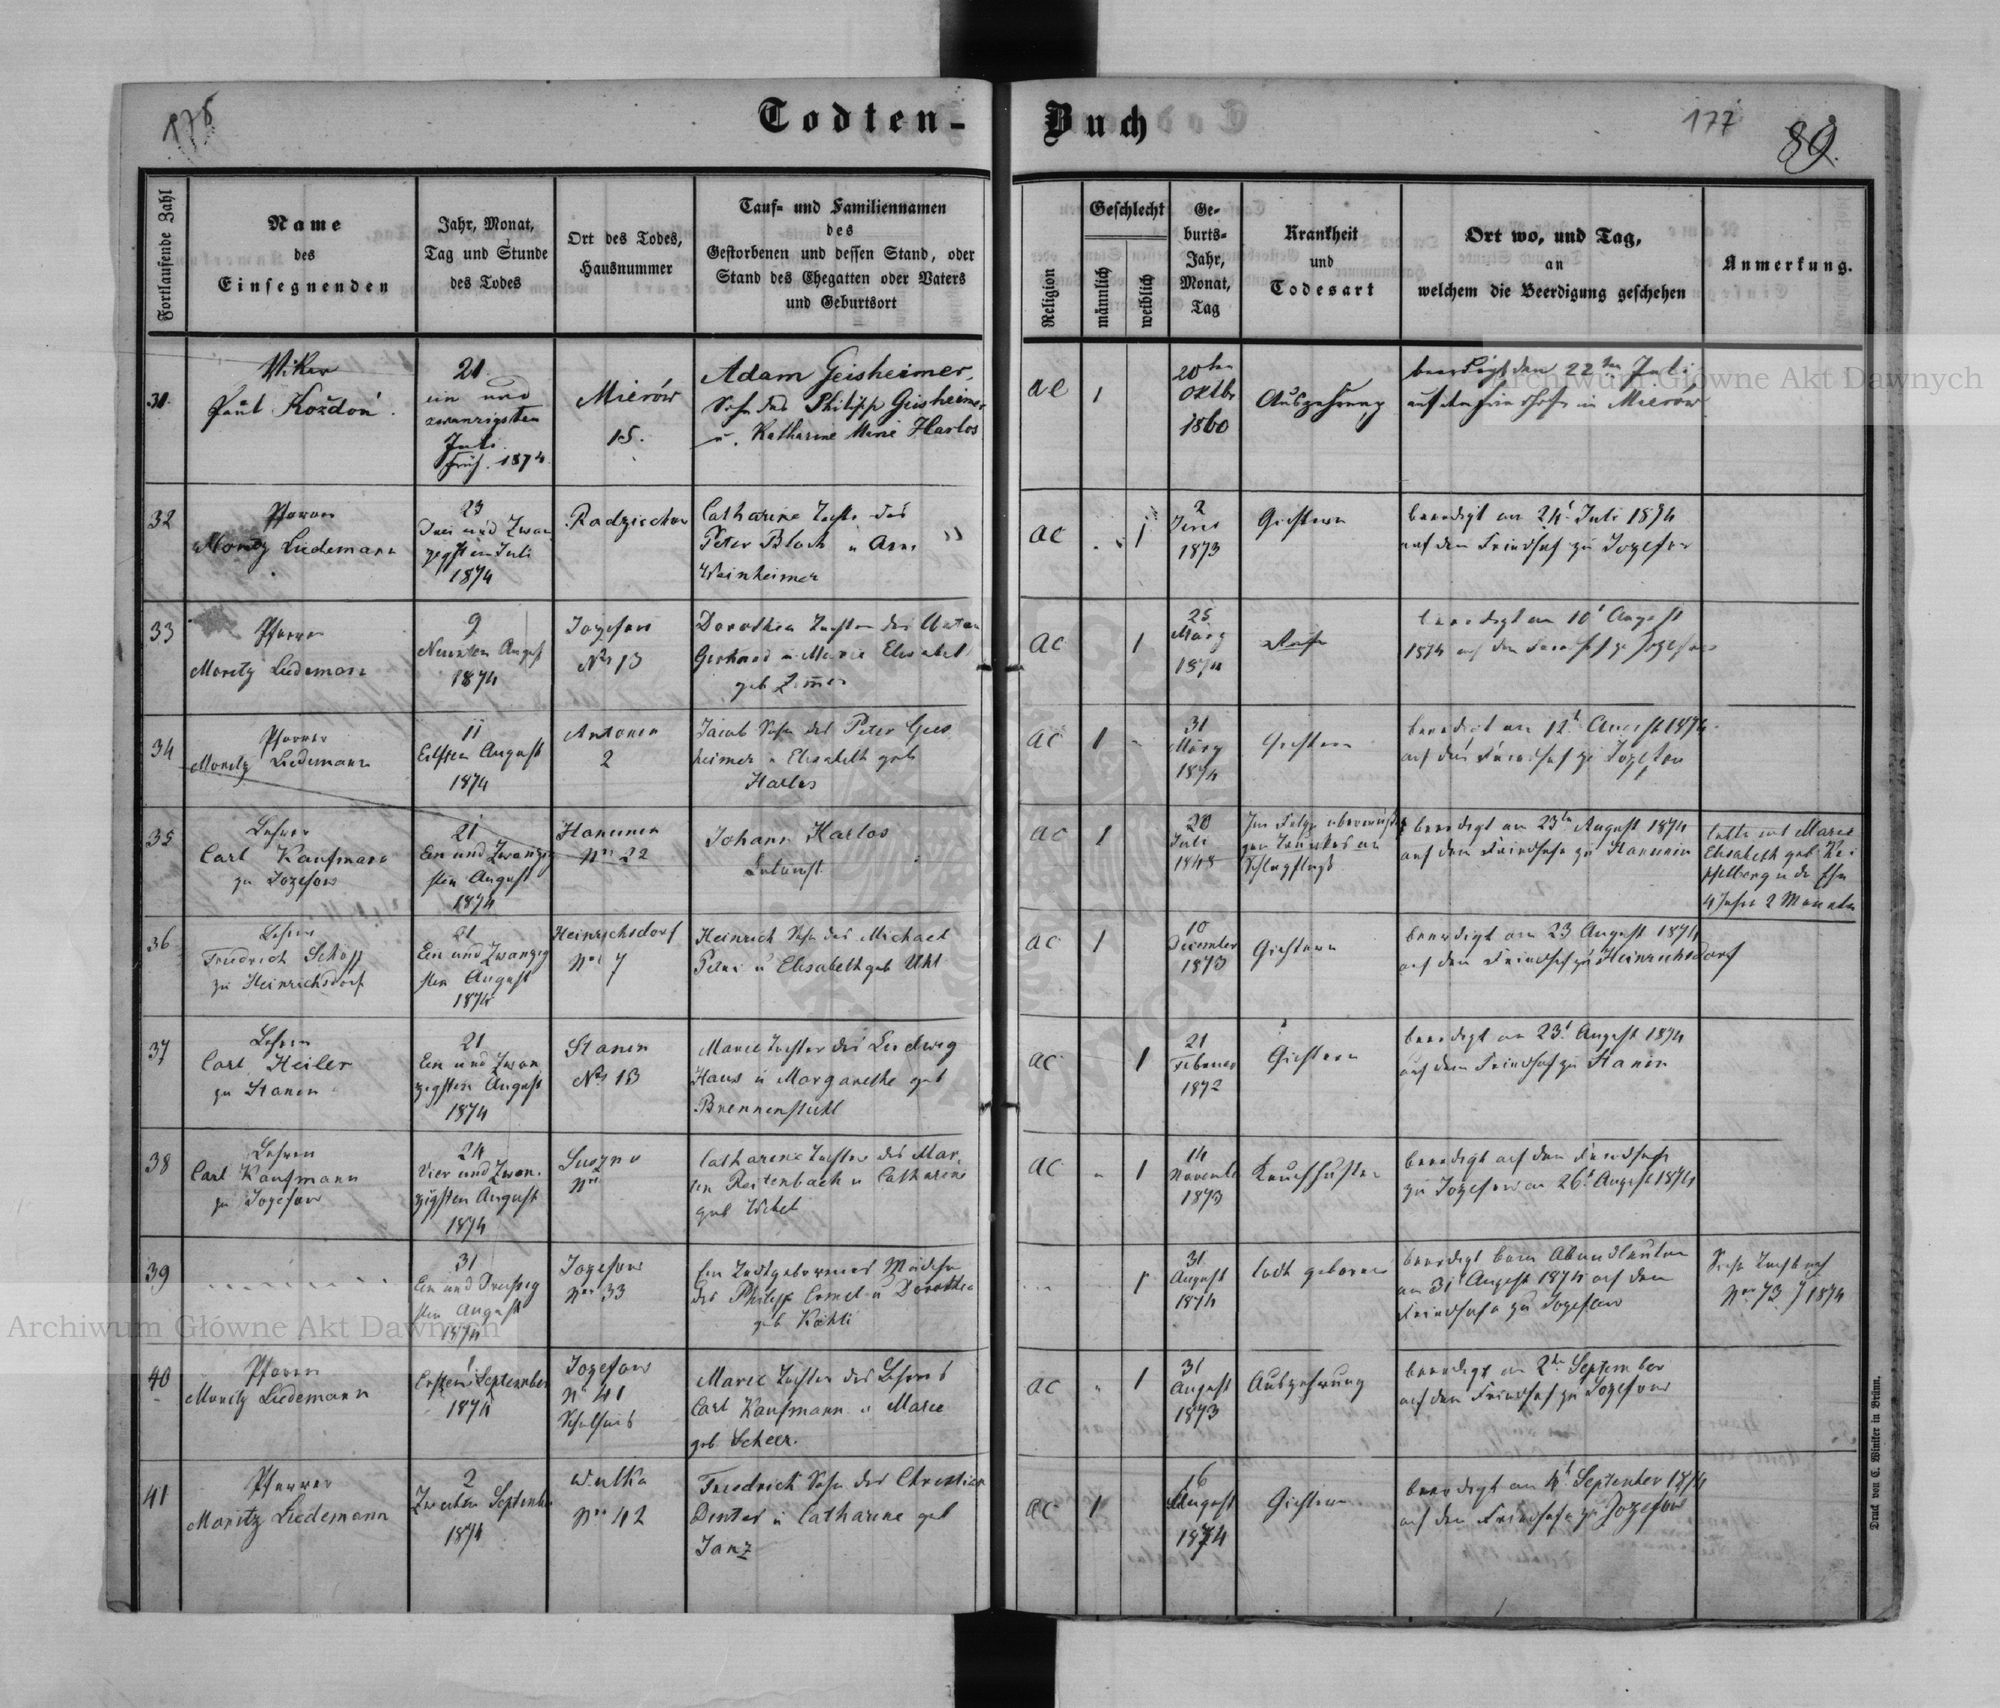 176
Todten-
Buch
177
89.
Fortlaufende Zahl
Name
des
Einsegnenden
Jahr, Monat,
Tag und Stunde
des Todes
Ort des Todes,
Hausnummer
Tauf- und Familiennamen
des
Gestorbenen und dessen Stand, oder
Stand des Ehegatten oder Vaters
und Geburtsort
Religion
Geschlecht
männlich
weiblich
Ge-
burts-
Jahr,
Monat,
Tag
Krankheit
und
Todesart
Ort wo, und Tag,
an
welchem die Beerdigung geschehen
Anmerkung.
31.
Viker
Paul Koždoń.
21.
ein und
zwanzigsten
Juli
früh. 1874.
Mierów
15.
Adam Geisheimer,
Sohn des Philipp Geisheimer
u. Katharine Marie Harlos
ac
1
20ten
Oktbr
1860
Auszehrung
beerdigt den 22ten Juli
auf dem Friedhofe in Mierow.
32
Pfarrer
Moritz Liedemann
23
Drei und Zwan
zigsten Juli
1874
Radziechow
Catharine Tochter des
Peter Bloch u Ann
Weinheimer
ac
1
2
1873
Gichtern
beerdigt am 24t Juli 1874
auf dem Friedhof zu Jozefow
33
Pfarrer
Moritz Liedemann
9
Neunten August
1874
Jozefow
Nro 13
Dorothea Tochter des Anton
Gerhard u Marie Elisabet
geb Zimmer
ac
1
25
März
1874
Ruhr
beerdigt am 10t August
1874 auf dem Friedhof zu Jozefow
34
Pfarrer
Moritz Liedemann
11
Eilften August
1874
Antonin
2
Jacob Sohn des Peter Geis
heimer u Elisabeth geb
Harlos
ac
1
31
März
1874
Gichtern
beerdigt am 12t August 1874
auf dem Friedhof zu Jozefow
35
Lehrer
Carl Kaufmann
zu Jozefow
21
Ein und Zwanzig
sten August
1874
Hanunin
Nro 22
Johann Harlos
ac
1
20
Juli
1848
Schlagfluß
beerdigt am 23ten August 1874
auf dem Friedhofe zu Hanunin
lebte mit Marie
Elisabeth geb
in der Ehe
4 Jahre 2 Monate
36
Lehrer
Friedrich Schopp
zu Heinrichsdorf
21
Ein und Zwanzig
sten August
1874
Heinrichsdorf
Nro 7
Heinrich Sohn des Michael
Petri u Elisabeth geb Uhl
ac
1
10
December
1873
Gichtern
beerdigt am 23 August 1874
auf dem Friedhof zu Heinrichsdorf
37
Lehrer
Carl Heiler
zu Stanin
21
Ein und Zwan
zigsten August
1874
Stanin
Nro 13
Marie Tochter des Ludwig
Haus u Margarethe geb
Brennenstuhl
ac
1
21
Februar
1872
Gichtern
beerdigt am 23t August 1874
auf dem Friedhof zu Stanin
38
Lehrer
Carl Kaufmann
zu Jozefow
24
Vier und Zwan-
zigsten August
1874
Suszno
Nro
Catharine Tochter des Mar-
tin Reitenbach u Catharine
geb
ac
1
14
Novemb
1873
Keuchhusten
beerdigt auf dem Friedhofe
zu Jozefow am 26t August 1874
39
31
Ein und Dreißig
sten August
1874
Jozefow
Nro 33
Ein Todtgebornes Mädchen
des Philipp Cornel u Dorothea
geb Köhli
1
31
August
1874
todt geboren
beerdigt beim Abendläuten
am 31t August 1874 auf dem
Friedhofe zu Jozefow
Siehe Taufbuch
Nro 73 / 1874
40
Pfarrer
Moritz Liedemann
1
Ersten September
1874
Jozefow
Nro 41
Schulhaus
Marie Tochter des Lehrers
Carl Kaufmann u Marie
geb Scheer.
ac
1
31
August
1873
Auszehrung
beerdigt am 2ten September
auf dem Friedhof zu Jozefow
41
Pfarrer
Moritz Liedemann
2
Zweiten September
1874
Wulka
Nro 42
Friedrich Sohn des Christian
Dinter u Catharine geb
Janz
ac
1
16
August
1874
Gichtern
beerdigt am 4t September 1874
auf dem Friedhofe zu Jozefow
Druck von C. Winiker in Brünn.
Archiwum Główne Akt Dawnych
Archiwum Główne Akt Dawnych